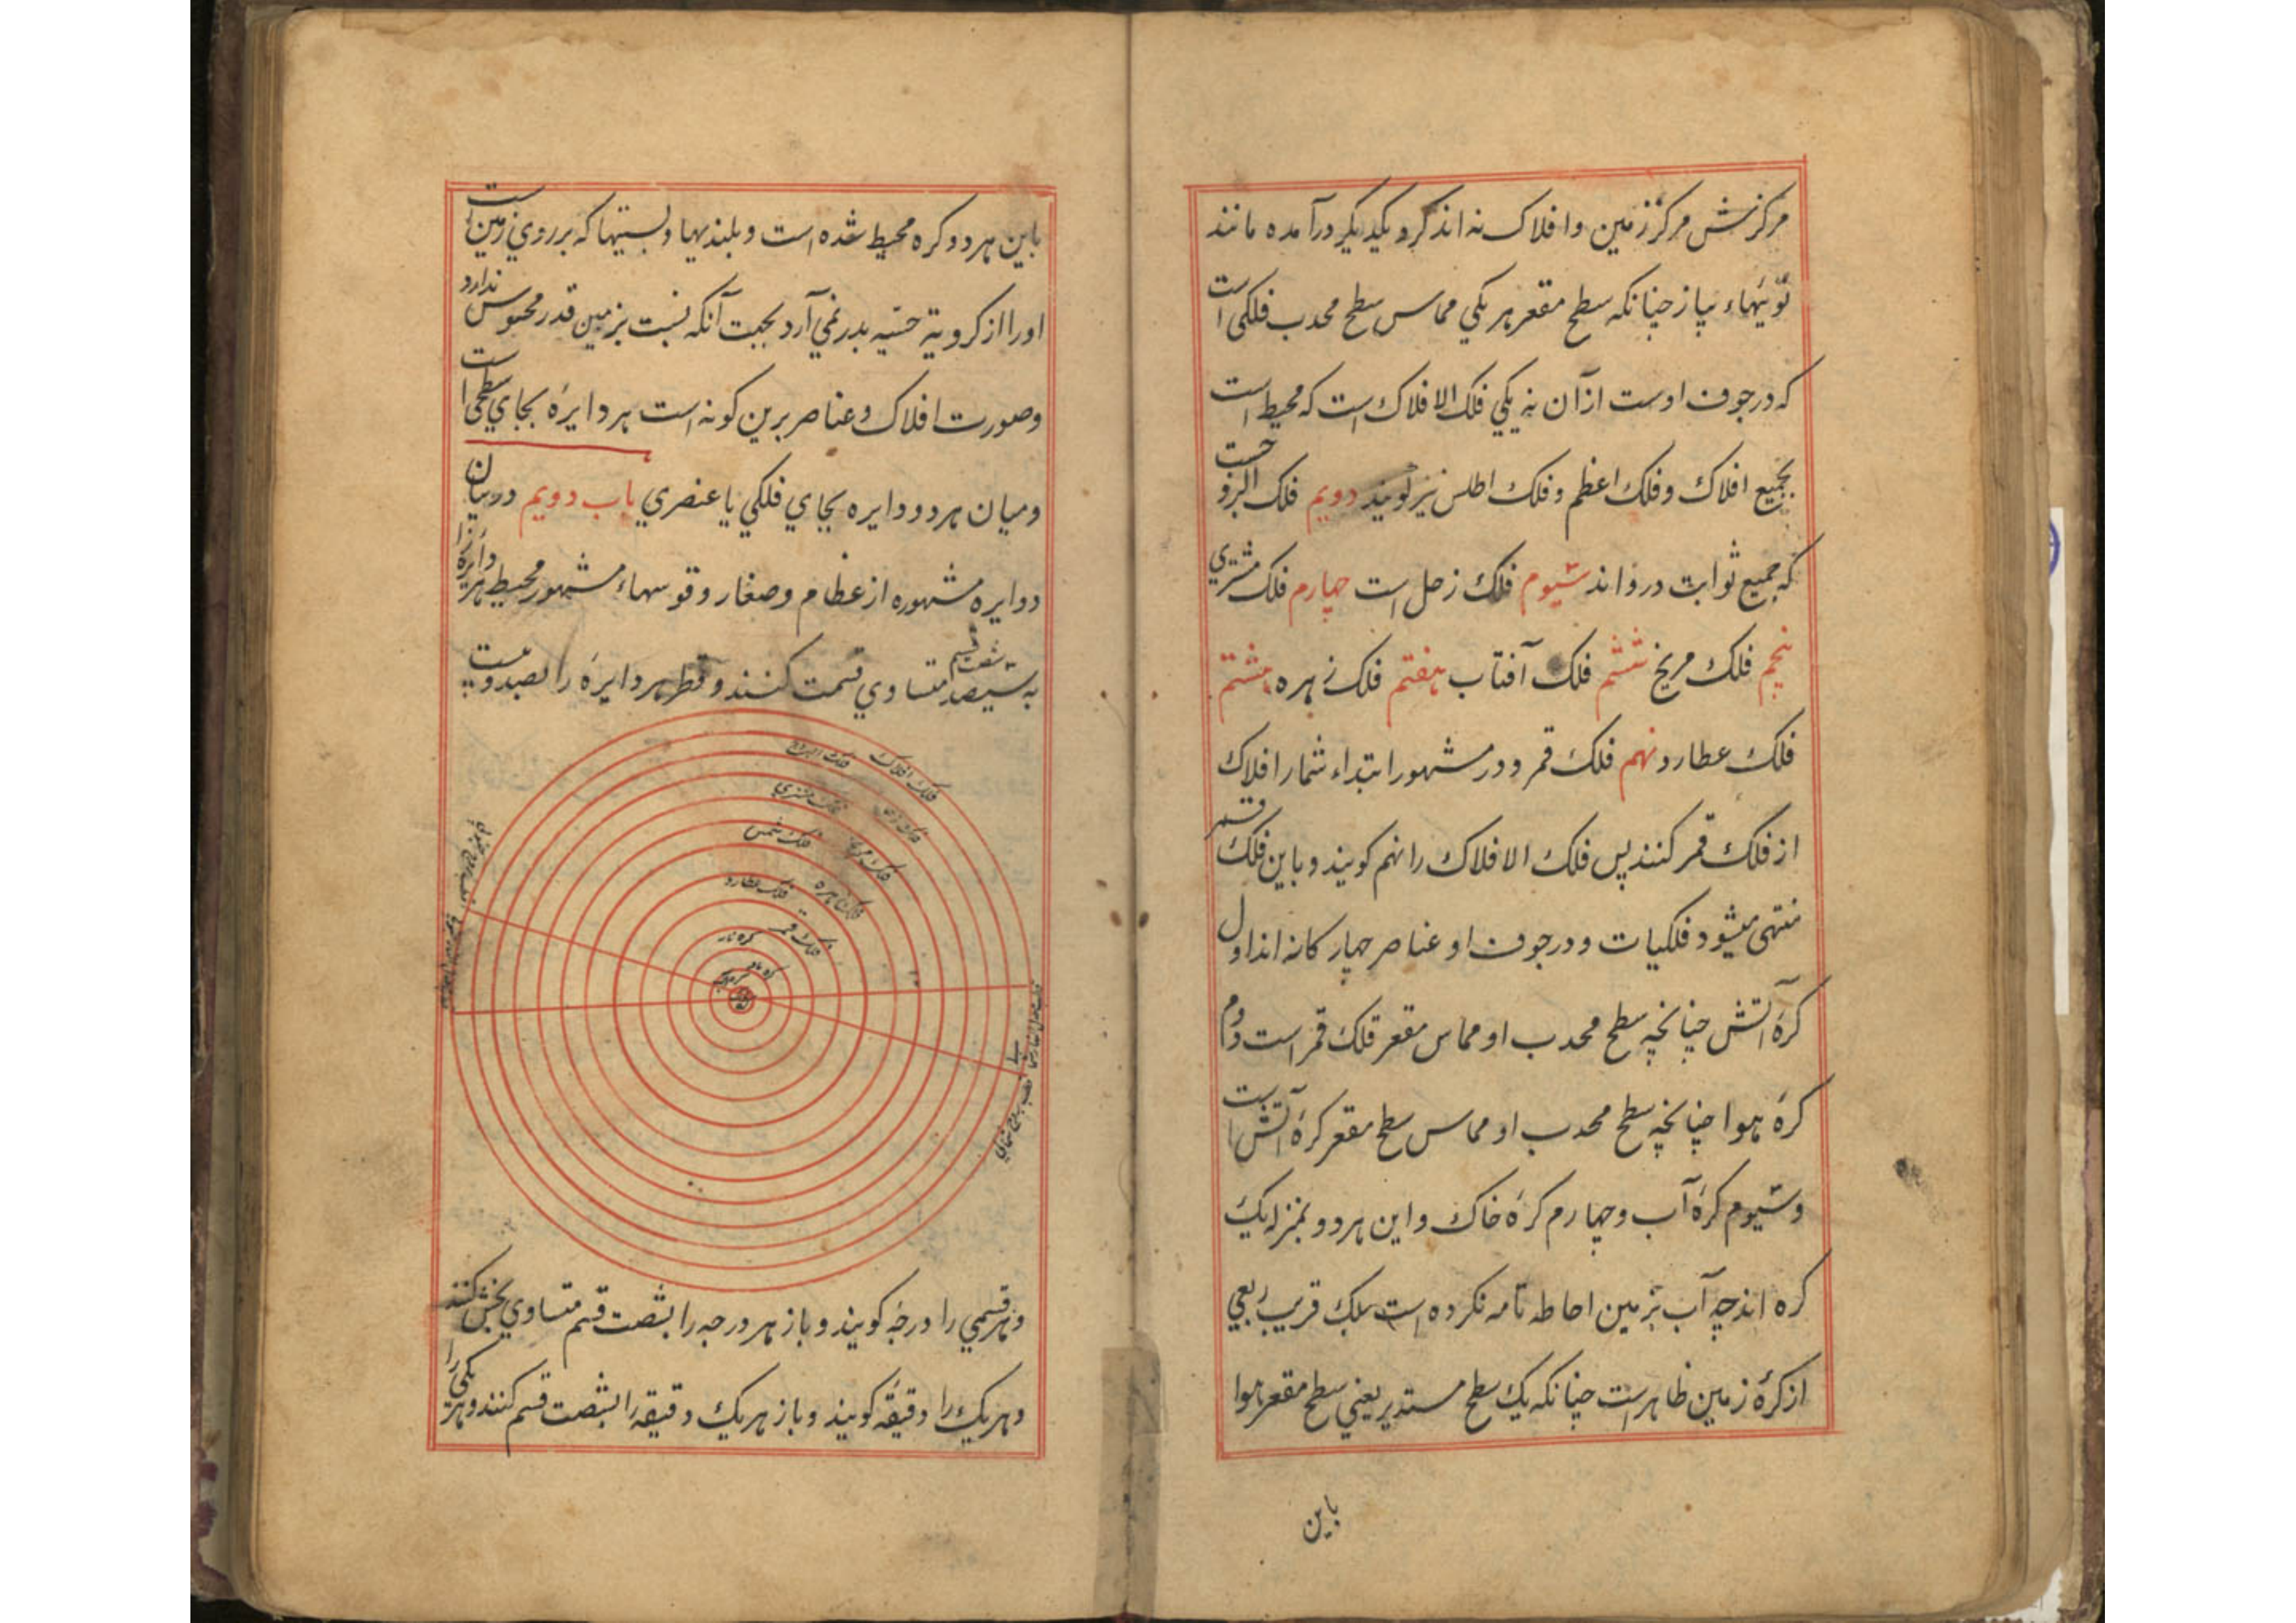 مرکزش مرکز زمین وافلاک نه اند کرد یکدیکر درآمده مانند
تویهاء پیاز چنانکه سطح مقعر هر یکی مماس سطح محدب فلکی است
که در جوف اوست ازآن نه یکی فلک الافلاک است که محیط است
بجمیع افلاک وفلک اعظم وفلک اطلس نیز کویند دویم فلک البروجست
که جمیع ثوابت درواند سیوم فلک زحل است چهارم فلک مشتری
پنجم فلک مریخ ششم فلک آفتاب هفتم فلک زهره هشتم
فلک عطارد نهم فلک قمر ودر مشهور ابتداء شمار افلاک
از فلک قمر کنند پس فلک الافلاک را نهم کویند وباین فلک قمر
منتهی میشود فلکیات ودرجوف او عناصر چهارکانه اند اول
کرهٔ آتش چنانچه سطح محدب او مماس مقعر فلک قمراست دوم
کرهٔ هوا چنانچه سطح محدب او مماس سطح مقعر کرهٔ آتش است
وسیوم کرهٔ آب وچهارم کرهٔ خاک واین هردو بمنزله یک
کره اند چه آب بزمین احاطه تامه نکرده است بلک قریب ربعی
ازکرهٔ زمین ظاهراست چنانکه یک سطح مستدیر یعنی سطح مقعر هوا
باین
باین هردو کره محیط شده است وبلندیها وپستیها که برروی زمین است
اورا ازکرویة حسّیه بدرنمی آرد بجهت آنکه نسبت بزمین قدر محسوس ندارد
وصورت افلاک وعناصر برین کونه است هر دایرهٔ بجای سطحی است
ومیان هردو دایره بجای فلکی یا عنصری باب دویم دربیان
دوایره مشهوره از عظام وصغار وقوسهاء مشهور محیط هر دایره را
به سیصد شصت قسم متساوی قسمت کنند وقطر هر دایرهٔ را بصدوبیست
فلک الافلاک
فلک البروج
فلک زحل
فلک مشتری
فلک مریخ
فلک شمس
فلک زهره
فلک عطارد
فلک قمر
کره نار
کره هوا
وهرقسمی را درجه کویند وباز هر درجه را بشصت قسم متساوی بخش کنند
وهریک را دقیقه کویند وباز هریک دقیقه را بشصت قسم کنند وهر یکی را